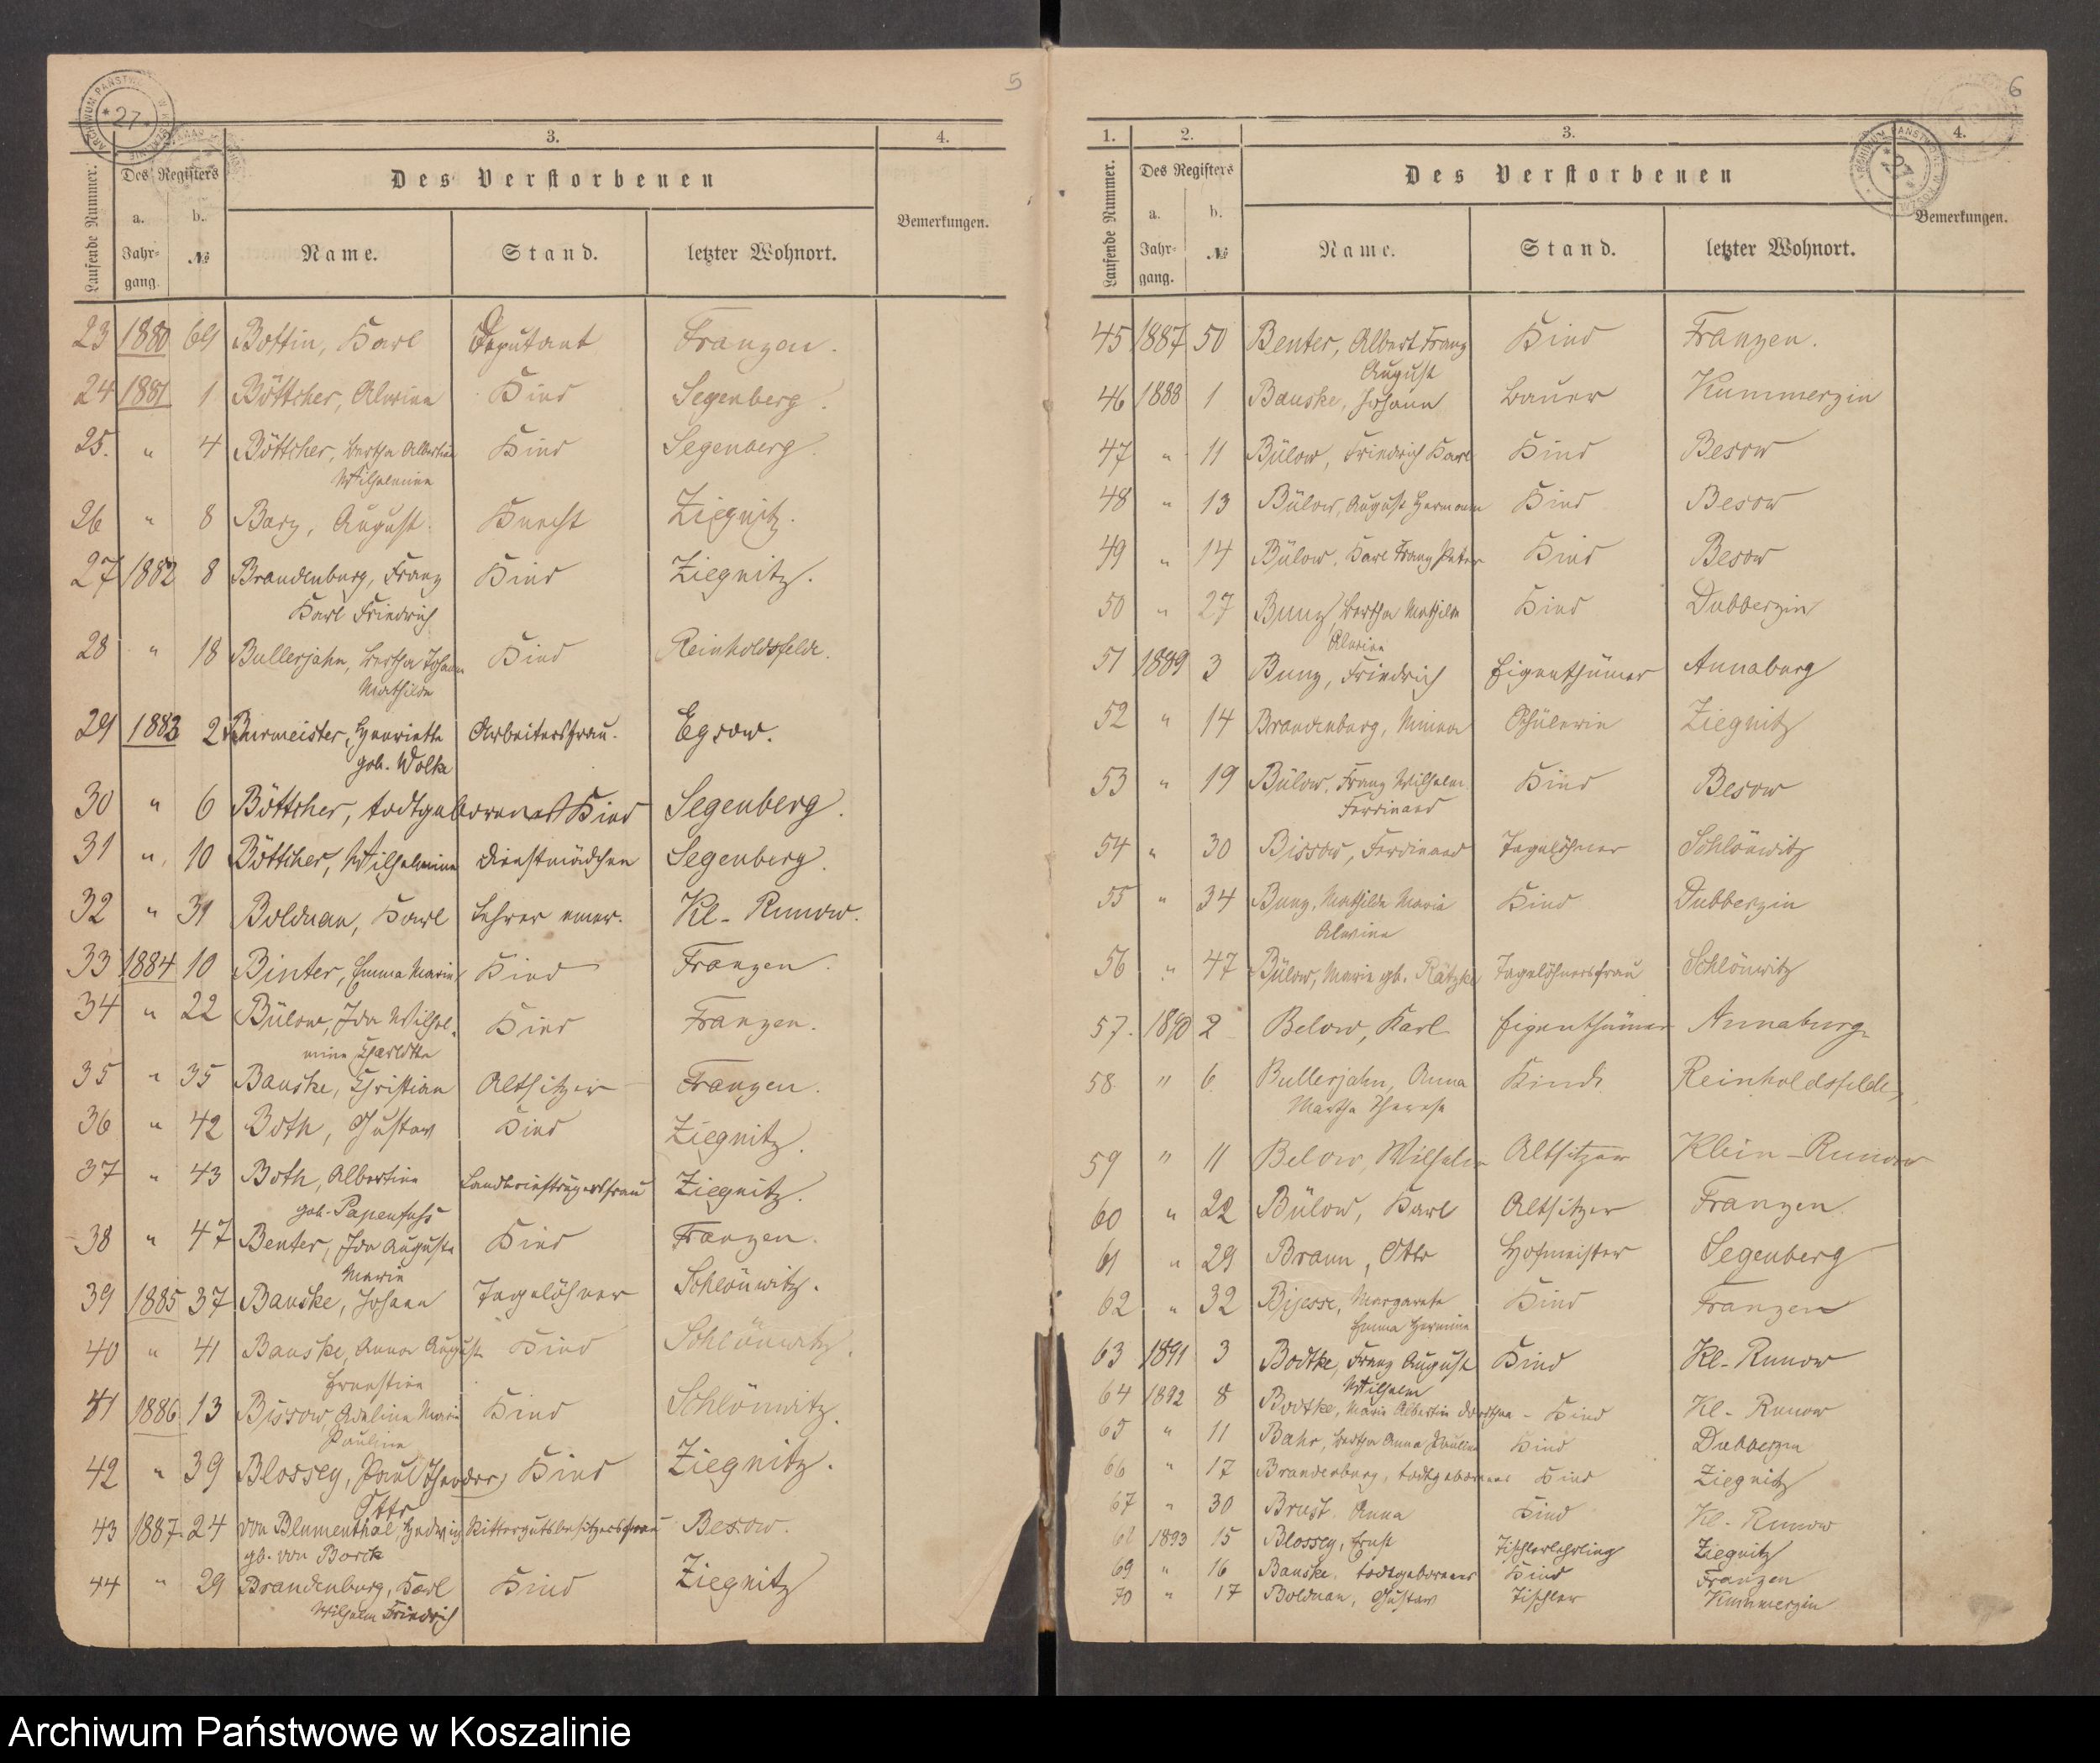 5
ARCHIWUM PAŃSTWOWE W KOSZALINIE
* 27 *
3.
4.
Laufende Nummer.
Des Registers
Des Verstorbenen
Bemerkungen.
a.
b.
Jahrgang.
№
Name.
Stand.
letzter Wohnort.
23 1880 64 Bottin, Karl Deputant Franzen.
24 1881 1 Böttcher, Alwine Kind Segenberg.
25. " 4 Böttcher, Bertha Albertine Kind Segenberg.
Wilhelmine
26 " 8 Barz, August Knecht Ziegnitz.
27 1882 8 Brandenburg, Franz Kind Ziegnitz.
Karl Friedrich
28 " 18 Bullerjahn, Bertha Johanne Kind Reinholdsfelde.
Mathilde
29 1883 2 Burmeister, Henriette Arbeitersfrau. Egsow.
geb. Wolke
30 " 6 Böttcher, todtgeborenes Kind Segenberg.
31 " 10 Böttcher, Wilhelmine Dienstmädchen Segenberg.
32 " 31 Bolduan, Karl Lehrer emer. Kl-Runow.
33 1884 10 Binter, Emma Marie Kind Franzen.
34 " 22 Bülow, Ida Wilhel- Kind Franzen.
mine Charlotte
35 " 35 Bauske, Christian Altsitzer Franzen.
36 " 42 Both, Gustav Kind Ziegnitz.
37 " 43 Both, Albertine Landbriefträgersfrau Ziegnitz.
geb. Papenfuhs
38 " 47 Benter, Ida Auguste Kind Franzen.
Marie
39 1885 37 Bauske, Johann Tagelöhner Schlönwitz.
40 " 41 Bauske, Anna Auguste Kind Schlönwitz.
Ernestine
41 1886 13 Bissow, Adeline Marie Kind Schlönwitz.
Pauline
42 " 39 Blossey, Paul Theodor, Kind Ziegnitz.
Otto
43 1887 24 von Blumenthal, Hedwig Rittergutsbesitzersfrau Besow.
gb. von Borck
44 " 29 Brandenburg, Karl Kind Ziegnitz
Wilhelm Friedrich
6
1.
2.
3.
4.
ARCHIWUM PAŃSTWOWE W KOSZALINIE
* 27 *
Laufende Nummer.
Des Registers
Des Verstorbenen
Bemerkungen.
a.
b.
Jahrgang.
№
Name.
Stand.
letzter Wohnort.
45 1887 50 Benter, Albert Franz Kind Franzen.
August
46 1888 1 Bauske, Johann Bauer Kummerzin
47 " 11 Bülow, Friedrich Karl Kind Besow
48 " 13 Bülow, August Hermann Kind Besow
49 " 14 Bülow, Karl Franz Peter Kind Besow
50 " 27 Bunz, Bertha Mathilde Kind Dubberzin
Alwine
51 1889 3 Bunz, Friedrich Eigenthümer Annaburg
52 " 14 Brandenburg, Minna Schülerin Ziegnitz
53 " 19 Bülow, Franz Wilhelm Kind Besow
Ferdinand
54 " 30 Bissow, Ferdinand Tagelöhner Schlönwitz
55 " 34 Bunz, Mathilde Maria Kind Dubberzin
Alwine
56 " 47 Bülow, Marie gb. Rätzke Tagelöhnersfrau Schlönwitz
57. 1890 2 Below, Karl Eigenthümer Annaburg
58 " 6 Bullerjahn, Anna Kind Reinholdsfelde
Martha Therese
59 " 11 Below, Wilhelm Altsitzer Klein-Runow
60 " 22 Bülow, Karl Altsitzer Franzen
61 " 29 Braun, Otto Hofmeister Segenberg
62 " 32 Bijesse, Margarete Kind Franzen
Emma Hermine
63 1891 3 Bodtke, Franz August Kind Kl-Runow
Wilhelm
64 1892 8 Bodtke, Marie Albertin Dorothea - Kind Kl-Runow
65 " 11 Bahr, Bertha Anna Pauline Kind Dubberzin
66 " 17 Brandenburg, todtgeborenes Kind Ziegnitz
67 " 30 Brust, Anna Kind Kl-Runow
68 1893 15 Blossey, Ernst Tischlerlehrling Ziegnitz
69 " 16 Bauske, todtgeborenes Kind Franzen
70 " 17 Bolduan, Gustav Tischler Kummerzin
Archiwum Państwowe w Koszalinie